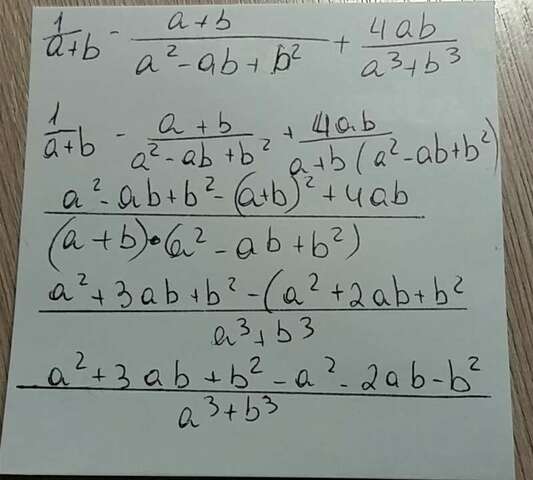 1/(a+b) - (a+b)/(a² - ab + b²) + 4ab/(a³+b³)
1/(a+b) - (a+b)/(a² - ab + b²) + 4ab/(a+b (a² - ab + b²))
(a² - ab + b² - (a+b)² + 4ab)/((a+b)·(a² - ab + b²))
(a² + 3ab + b² - (a² + 2ab + b²)/(a³+b³)
(a² + 3ab + b² - a² - 2ab - b²)/(a³+b³)